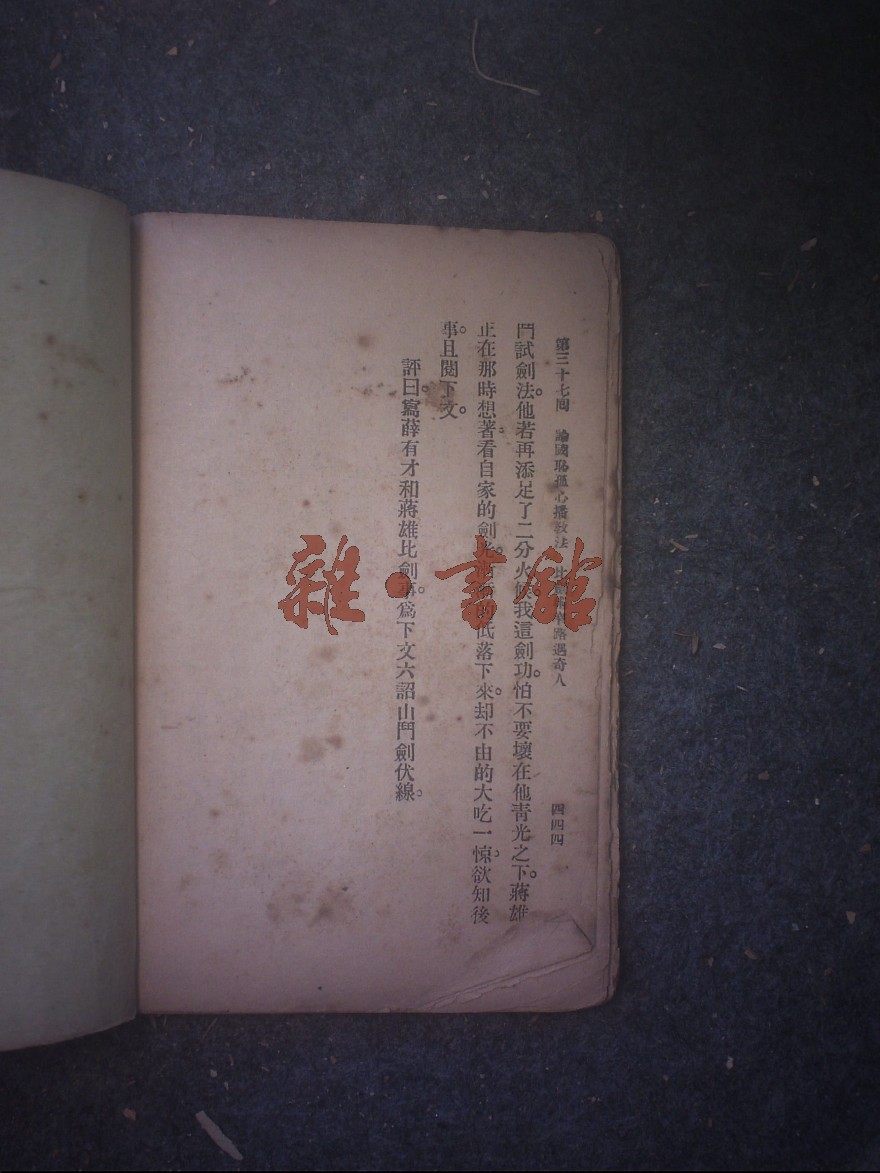 第三十七回 論國恥孤心播教法 比劍 路遇奇人
四四四
鬥試劍法。他若再添足了二分火候。我這劍功。怕不要壞在他青光之下。蔣雄
正在那時想著。看自家的劍光。低落下來。却不由的大吃一惊。欲知後
事。且閱下文。
評曰。寫薛有才和蔣雄比劍事。爲下文六詔山鬥劍伏線。
雜·書館